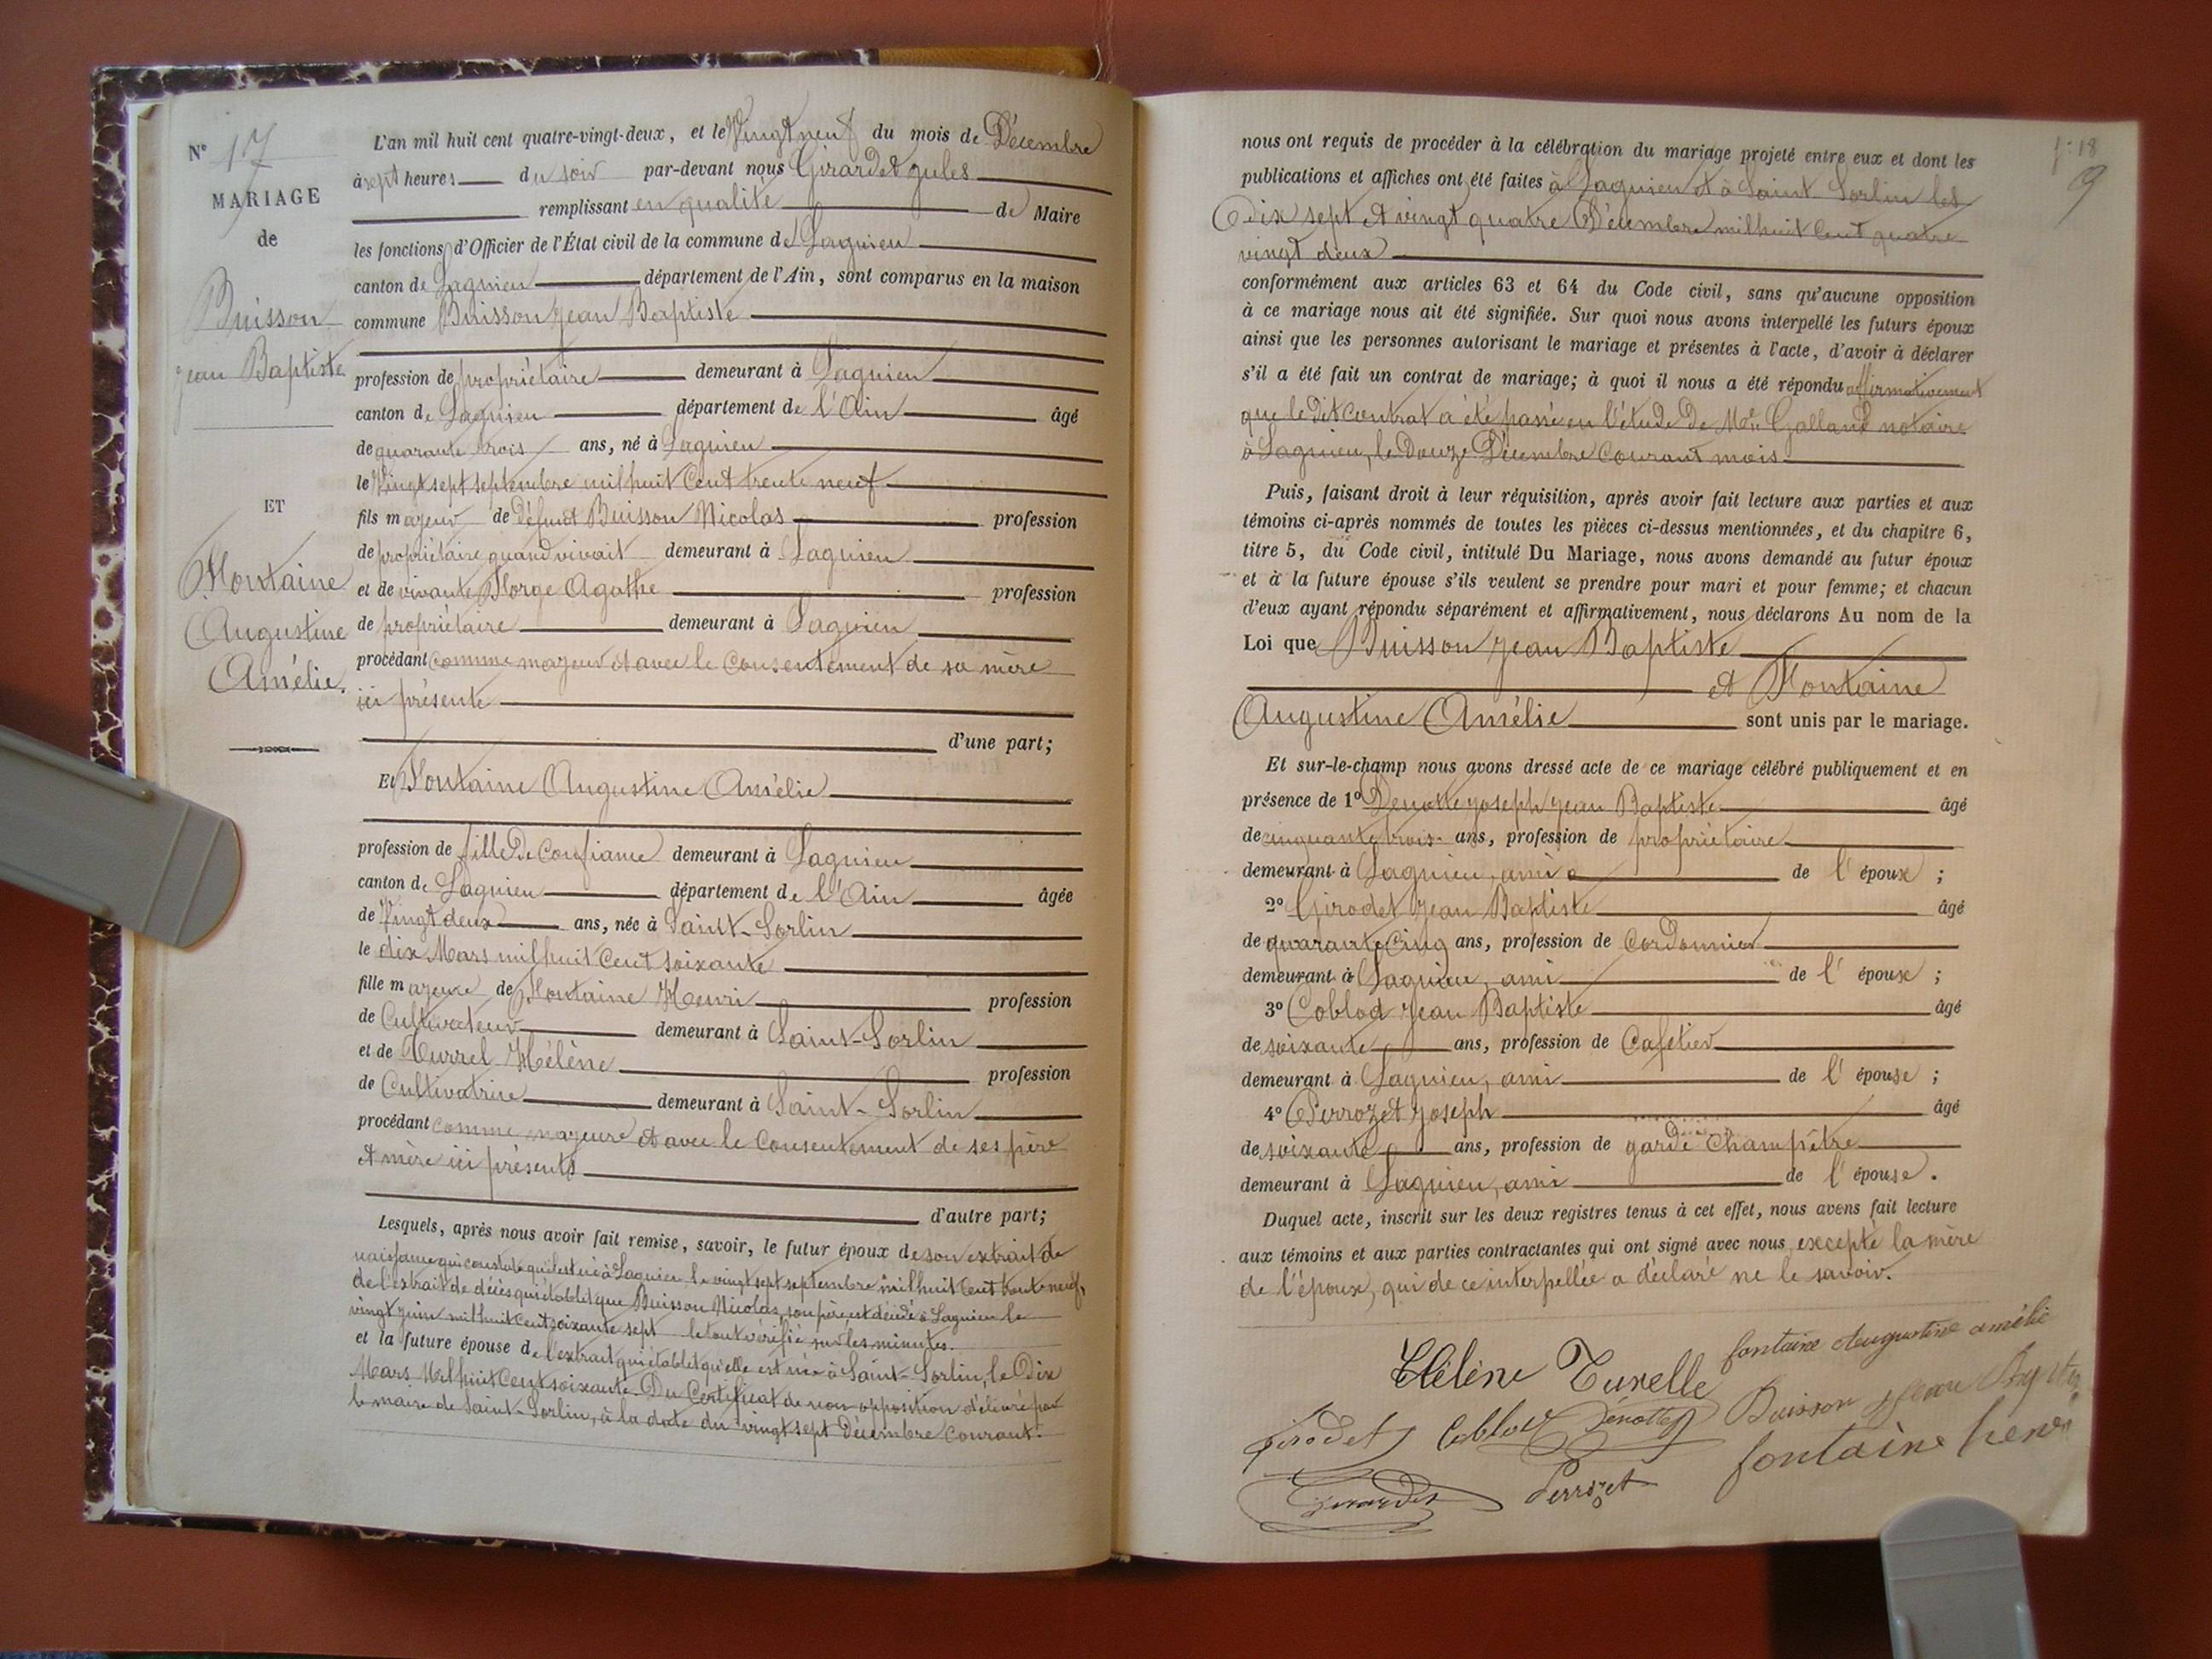 N° 17
MARIAGE
de
Buisson
Jean Baptiste
ET
Fontaine
Augustine
Amélie.
L'an mil huit cent quatre-vingt-deux, et le Vingt neuf du mois de Décembre
à sept heures du soir par-devant nous Girardet Jules
remplissant en qualité de Maire
les fonctions d'Officier de l'État civil de la commune de Lagnieu
canton de Lagnieu département de l'Ain, sont comparus en la maison
commune Buisson Jean Baptiste
profession de propriétaire demeurant à Lagnieu
canton de Lagnieu département de l'Ain âgé
de quarante trois ans, né à Lagnieu
le Vingt sept septembre mil huit Cent trente neuf
fils majeur de défunt Buisson Nicolas profession
de propriétaire quand vivait demeurant à Lagnieu
et de vivante Morge Agathe profession
de propriétaire demeurant à Lagnieu
procédant comme majeur et avec le consentement de sa mère
ici présente
d'une part;
Et Fontaine Augustine Amélie
profession de fille de confiance demeurant à Lagnieu
canton de Lagnieu département de l'Ain âgée
de Vingt deux ans, née à Saint-Sorlin
le dix Mars mil huit Cent soixante
fille majeure de Fontaine Henri profession
de Cultivateur demeurant à Saint-Sorlin
et de Turrel Hélène profession
de Cultivatrice demeurant à Saint-Sorlin
procédant comme majeure et avec le consentement de ses père
et mère ici présents
d'autre part;
Lesquels, après nous avoir fait remise, savoir, le futur époux de son extrait de
naissance qui constate qu'il est né à Lagnieu le vingt sept septembre mil huit Cent trente neuf,
de l'extrait de décès qui établit que Buisson Nicolas, son père, est décédé à Lagnieu le
vingt juin mil huit cent soixante sept le tout vérifié sur les minutes.
et la future épouse de l'extrait qui établit qu'elle est née à Saint-Sorlin, le Dix
Mars Mil huit Cent soixante. Du Certificat de non opposition délivré par
le maire de Saint-Sorlin, à la date du vingt sept Décembre courant.
f: 18
9
nous ont requis de procéder à la célébration du mariage projeté entre eux et dont les
publications et affiches ont été faites à Lagnieu et à Saint-Sorlin les
Dix sept et vingt quatre Décembre mil huit Cent quatre
vingt deux
conformément aux articles 63 et 64 du Code civil, sans qu'aucune opposition
à ce mariage nous ait été signifiée. Sur quoi nous avons interpellé les futurs époux
ainsi que les personnes autorisant le mariage et présentes à l'acte, d'avoir à déclarer
s'il a été fait un contrat de mariage; à quoi il nous a été répondu affirmativement
que le dit contrat a été passé en l'étude de Me Galland notaire
à Lagnieu, le Douze Décembre Courant mois
Puis, faisant droit à leur réquisition, après avoir fait lecture aux parties et aux
témoins ci-après nommés de toutes les pièces ci-dessus mentionnées, et du chapitre 6,
titre 5, du Code civil, intitulé Du Mariage, nous avons demandé au futur époux
et à la future épouse s'ils veulent se prendre pour mari et pour femme; et chacun
d'eux ayant répondu séparément et affirmativement, nous déclarons Au nom de la
Loi que Buisson Jean Baptiste
et Fontaine
Augustine Amélie sont unis par le mariage.
Et sur-le-champ nous avons dressé acte de ce mariage célébré publiquement et en
présence de 1° Joseph Jean Baptiste âgé
de cinquante trois ans, profession de propriétaire
demeurant à Lagnieu, ami de l'époux;
2° Girodet Jean Baptiste âgé
de quarante Cinq ans, profession de Cordonnier
demeurant à Lagnieu, ami de l'époux;
3° Coblod Jean Baptiste âgé
de soixante ans, profession de Cafetier
demeurant à Lagnieu, ami de l'épouse;
4° Perrozet Joseph âgé
de soixante ans, profession de garde Champêtre
demeurant à Lagnieu, ami de l'épouse.
Duquel acte, inscrit sur les deux registres tenus à cet effet, nous avons fait lecture
aux témoins et aux parties contractantes qui ont signé avec nous, excepté la mère
de l'époux, qui de ce interpellée a déclaré ne le savoir.
fontaine Augustine amélie
Hélène Turelle
Buisson Jean Baptiste
Girodet Coblod Dénotte
fontaine henri
Girardet Perrozet